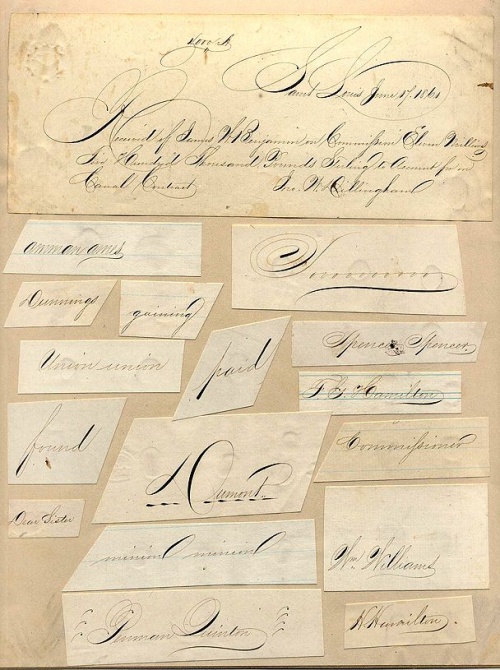 Saint Louis June 17, 1861
Received of James W Benjamin on Commission Eleven Millions
Six Hundred Thousand Pounds Sterling to Account for on
Canal Contract Jno. W. Cullingham
amman ames
Dunnings
gaining
Union union
paid
Spencer Spencer.
Hamilton
found
Commissioner
Dumont.
Dear Sister
minion minion
Wm. Williams
Penman Quinton
H Hamilton.